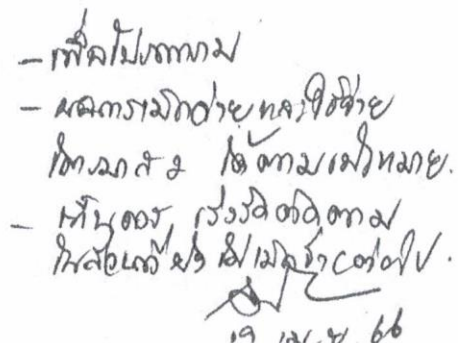 - เพื่อโปรดทราบ
- ผลการเบิกจ่ายและใช้จ่าย
ไตรมาส 2 ได้ตามเป้าหมาย.
- เห็นควร เร่งรัดติดตาม
ในส่วนที่ยังไม่เบิกจ่ายต่อไป.
19 เม.ย. 66